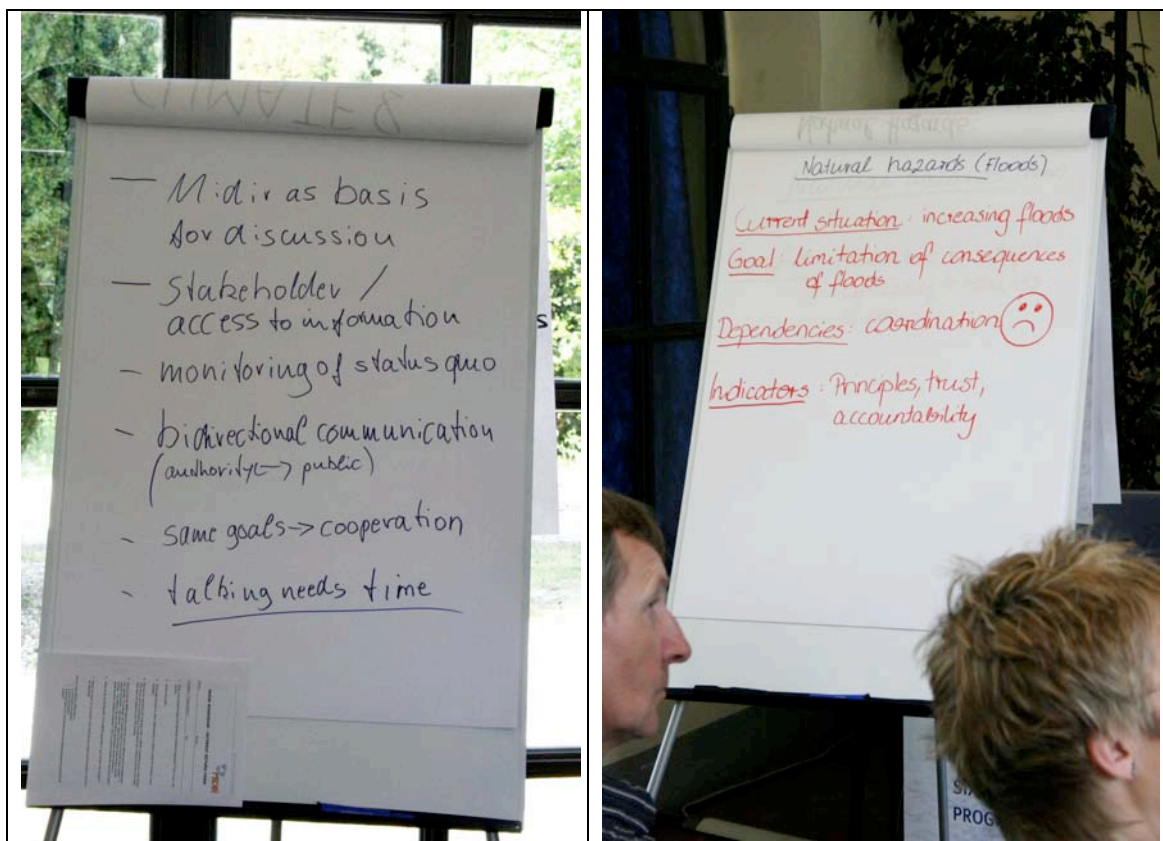 — Midir as basis
for discussion
— Stakeholder /
access to information
- monitoring of status quo
- bidirectional communication
(authority <-> public)
- same goals -> cooperation
- talking needs time
Natural Hazards
Natural hazards (Floods)
Current situation: increasing floods
Goal: limitation of consequences
of floods
Dependencies: coordination
Indicators: Principles, trust,
accountability